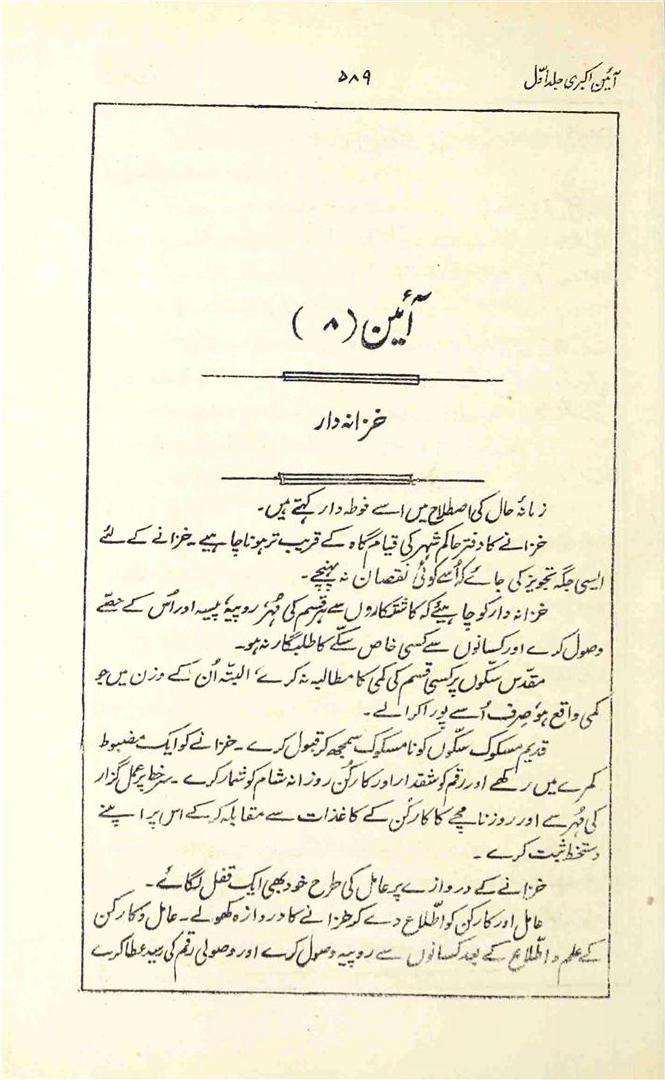 آئین اکبری جلد اوّل
۵۸۹
آئین (۸)
خزانہ دار
زمانۂ حال کی اصطلاح میں اسے فوطہ دار کہتے ہیں۔
خزانے کا دفتر حاکم شہر کی قیام گاہ کے قریب تر ہونا چاہیے۔ خزانے کے لئے
ایسی جگہ تجویز کی جائے کہ اُسے کوئی نقصان نہ پہنچے۔
خزانہ دار کو چاہیئے کہ کاشتکاروں سے ہر قسم کی مُہر، روپیہ، پیسہ اور اُس کے حصّے
وصول کرے اور کسانوں سے کسی خاص سکّے کا طلبگار نہ ہو۔
مقدّس سکّوں پر کسی قسم کی کمی کا مطالبہ نہ کرے، البتّہ اُن کے وزن میں جو
کمی واقع ہو، صرف اُسے پورا کرالے۔
قدیم مسکوک سکّوں کو نامسکوک سمجھ کر قبول کرے۔ خزانے کو ایک مضبوط
کمرے میں رکھے اور رقم کو شقدار اور کارکن روزانہ شام کو شمار کرے۔ سرخط پر عمل گزار
کی مُہر سے اور روزنامچے کا کارکن کے کاغذات سے مقابلہ کرکے اس پر اپنے
دستخط ثبت کرے۔
خزانے کے دروازے پر عامل کی طرح خود بھی ایک قفل لگائے۔
عامل اور کارکن کو اطّلاع دے کر خزانے کا دروازہ کھولے۔ عامل و کارکن
کے علم و اطّلاع کے بعد کسانوں سے روپیہ وصول کرے اور وصولی رقم کی رسید عطا کرے